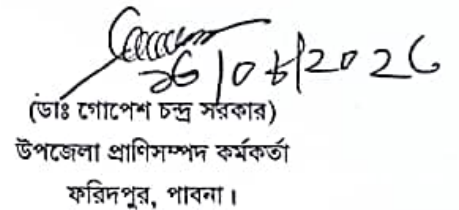 (ডাঃ গোপেশ চন্দ্র সরকার)
উপজেলা প্রাণিসম্পদ কর্মকর্তা
ফরিদপুর, পাবনা।